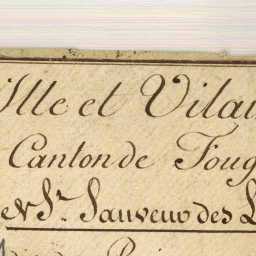 Ille et Vilai
Canton de Foug
et St. Sauveur des L